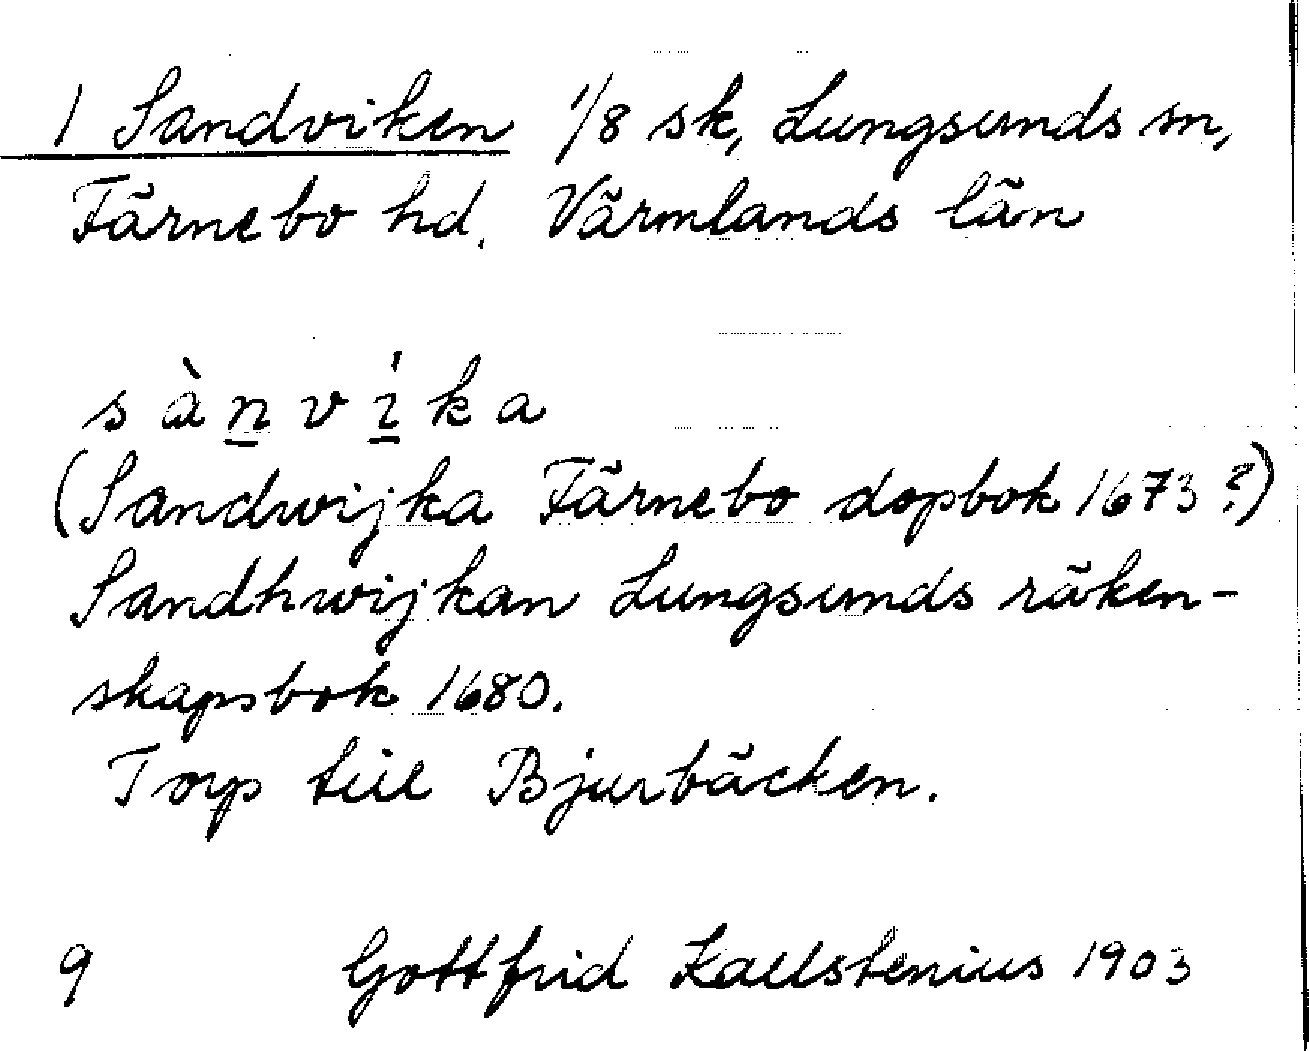 1 Sandviken 1/8 sk, Lungsunds sn,
Färnebo hd. Värmlands län
sànvíka
(Sandwijka Färnebo dopbok 1673?)
Sandhwijkan Lungsunds räken-
skapsbok 1680.
Torp till Bjurbäcken.
9 Gottfrid Kallstenius 1903